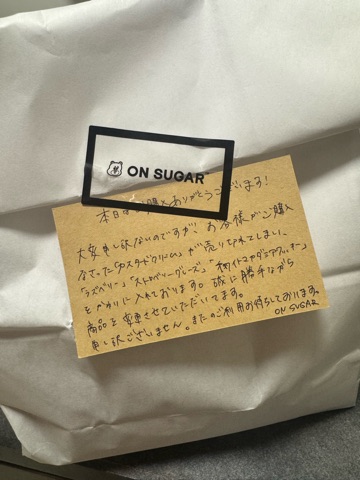 ON SUGAR
本日はご購入ありがとうございます!
大変申し訳ないのですが、お客様がご購入
なさった「カスタードクリーム」が売り切れてしまい、
「ラズベリー」「ストロベリーグレーズ」「ホワイトマカダミアクッキー」
をかわりに入れております。誠に勝手ながら
商品を変更させていただいてます。
申し訳ございません。またのご利用お待ちしております。
ON SUGAR